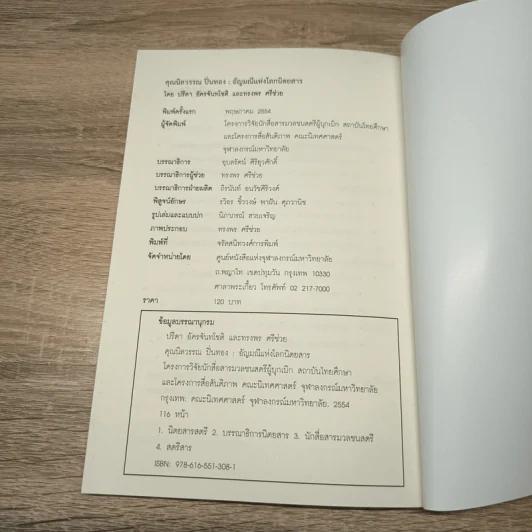 คุณนิลวรรณ ปิ่นทอง : อัญมณีแห่งโลกนิตยสาร
โดย ปรีดา อัครจันทโชติ และทรงพร ศรีช่วย
พิมพ์ครั้งแรก พฤษภาคม 2554
ผู้จัดพิมพ์ โครงการวิจัยนักสื่อสารมวลชนสตรีผู้บุกเบิก สถาบันไทยศึกษา
และโครงการสื่อสันติภาพ คณะนิเทศศาสตร์
จุฬาลงกรณ์มหาวิทยาลัย
บรรณาธิการ อุบลรัตน์ ศิริยุวศักดิ์
บรรณาธิการผู้ช่วย ทรงพร ศรีช่วย
บรรณาธิการฝ่ายผลิต ถิรนันท์ อนวัชศิริวงศ์
พิสูจน์อักษร รวิอร ชี้วงษ์ พาฝัน ศุภวานิช
รูปเล่มและแบบปก นิภาภรณ์ สวยเจริญ
ภาพประกอบ ทรงพร ศรีช่วย
พิมพ์ที่ จรัลสนิทวงศ์การพิมพ์
จัดจำหน่ายโดย ศูนย์หนังสือแห่งจุฬาลงกรณ์มหาวิทยาลัย
ถ.พญาไท เขตปทุมวัน กรุงเทพ 10330
ศาลาพระเกี้ยว โทรศัพท์ 02 217-7000
ราคา 120 บาท
ข้อมูลบรรณานุกรม
ปรีดา อัครจันทโชติ และทรงพร ศรีช่วย
คุณนิลวรรณ ปิ่นทอง : อัญมณีแห่งโลกนิตยสาร
โครงการวิจัยนักสื่อสารมวลชนสตรีผู้บุกเบิก สถาบันไทยศึกษา
และโครงการสื่อสันติภาพ คณะนิเทศศาสตร์ จุฬาลงกรณ์มหาวิทยาลัย
กรุงเทพ: คณะนิเทศศาสตร์ จุฬาลงกรณ์มหาวิทยาลัย, 2554
116 หน้า
1. นิตยสารสตรี 2. บรรณาธิการนิตยสาร 3. นักสื่อสารมวลชนสตรี
4. สตรีสาร
ISBN: 978-616-551-308-1